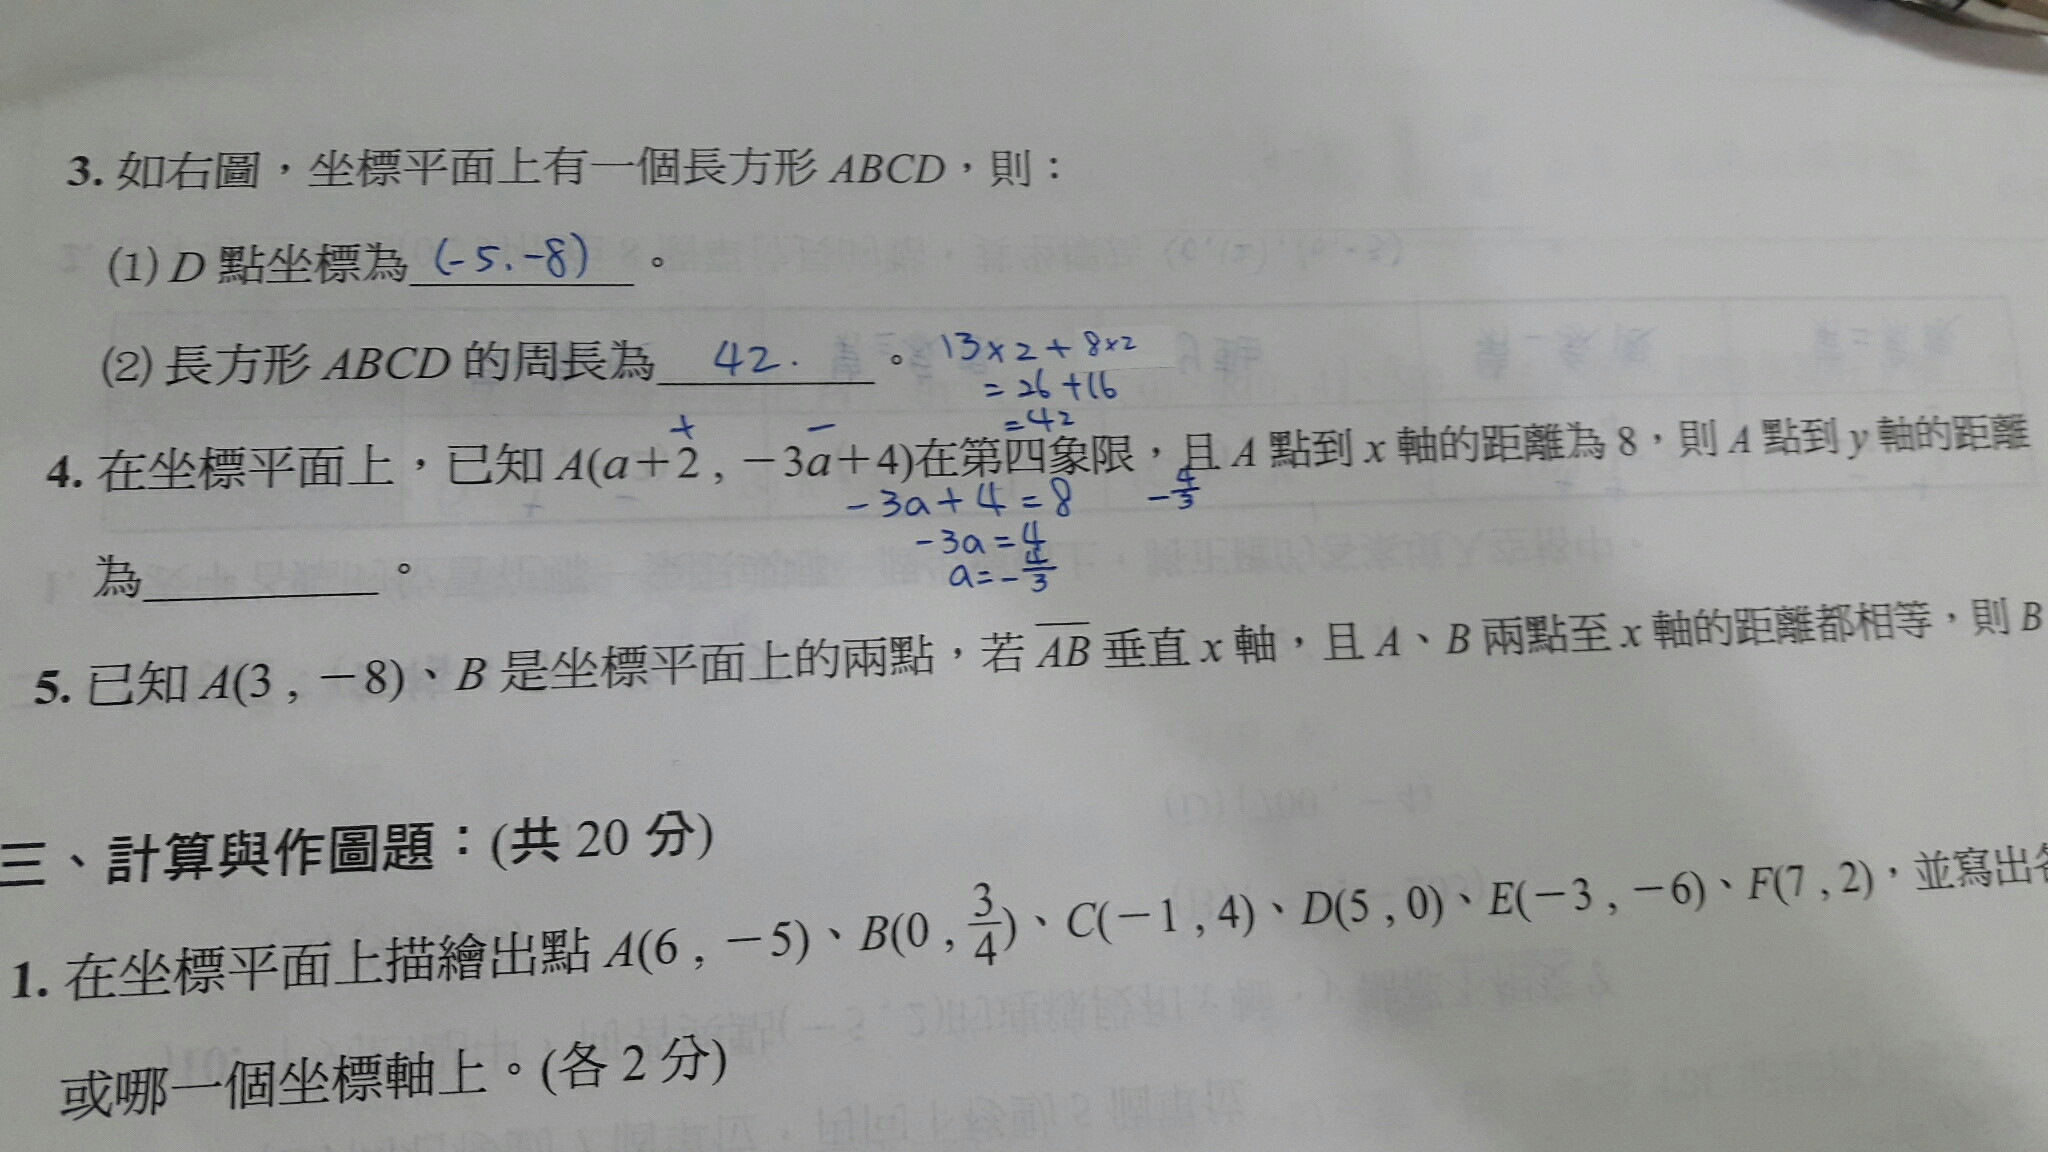 3. 如右圖，坐標平面上有一個長方形 ABCD，則：
(1) D 點坐標為 (-5.-8) 。
(2) 長方形 ABCD 的周長為 42. 。 13×2+8×2
=26+16
=42
+ −
4. 在坐標平面上，已知 A(a+2 , −3a+4)在第四象限，且 A 點到 x 軸的距離為 8，則 A 點到 y 軸的距離
-3a+4=8 -4/3
-3a=4
為 。 a=-4/3
5. 已知 A(3 , −8)、B 是坐標平面上的兩點，若 AB 垂直 x 軸，且 A、B 兩點至 x 軸的距離都相等，則 B
三、計算與作圖題：(共 20 分)
1. 在坐標平面上描繪出點 A(6 , −5)、B(0 , 3/4)、C(−1 , 4)、D(5 , 0)、E(−3 , −6)、F(7 , 2)，並寫出各
或哪一個坐標軸上。(各 2 分)